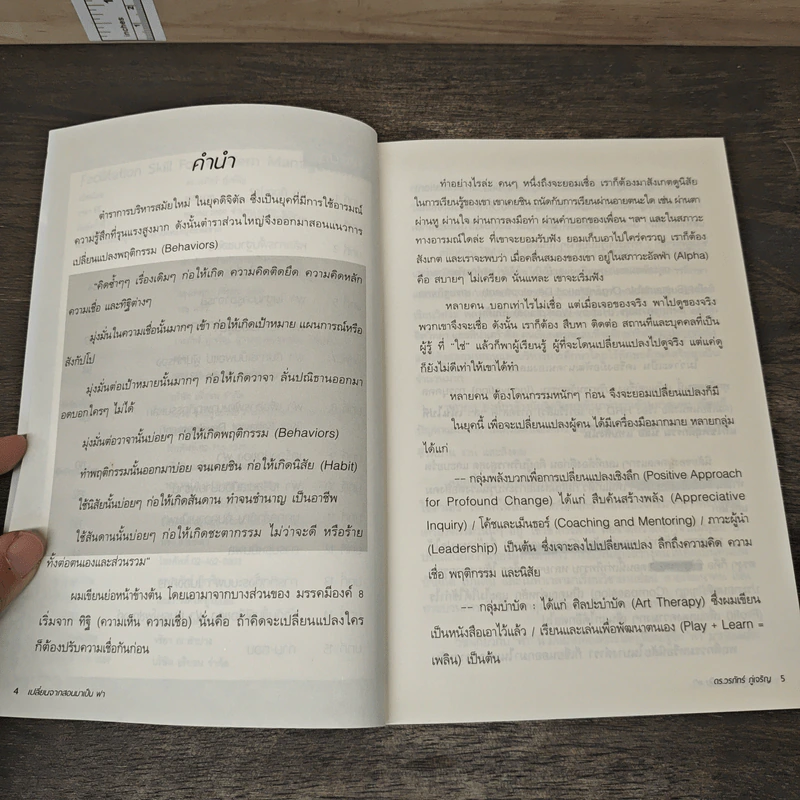 inches
1
2
คำนำ
ตำราการบริหารสมัยใหม่ ในยุคดิจิตัล ซึ่งเป็นยุคที่มีการใช้อารมณ์
ความรู้สึกที่รุนแรงสูงมาก ดังนั้นตำราส่วนใหญ่จึงออกมาสอนแนวการ
เปลี่ยนแปลงพฤติกรรม (Behaviors)
"คิดซ้ำๆๆ เรื่องเดิมๆ ก่อให้เกิด ความคิดติดยึด ความคิดหลัก
ความเชื่อ และทิฐิต่างๆ
มุ่งมั่นในความเชื่อนั้นมากๆ เข้า ก่อให้เกิดเป้าหมาย แผนการณ์หรือ
สังกัปโป
มุ่งมั่นต่อเป้าหมายนั้นมากๆ ก่อให้เกิดวาจา ลั่นปณิธานออกมา
อดบอกใครๆ ไม่ได้
มุ่งมั่นต่อวาจานั้นบ่อยๆ ก่อให้เกิดพฤติกรรม (Behaviors)
ทำพฤติกรรมนั้นออกมาบ่อย จนเคยชิน ก่อให้เกิดนิสัย (Habit)
ใช้นิสัยนั้นบ่อยๆ ก่อให้เกิดสันดาน ทำจนชำนาญ เป็นอาชีพ
ใช้สันดานนั้นบ่อยๆ ก่อให้เกิดชะตากรรม ไม่ว่าจะดี หรือร้าย
ทั้งต่อตนเองและส่วนรวม"
ผมเขียนย่อหน้าข้างต้น โดยเอามาจากบางส่วนของ มรรคมีองค์ 8
เริ่มจาก ทิฐิ (ความเห็น ความเชื่อ) นั่นคือ ถ้าคิดจะเปลี่ยนแปลงใคร
ก็ต้องปรับความเชื่อกันก่อน
4 เปลี่ยนจากสอนมาเป็น พา
ทำอย่างไรล่ะ คนๆ หนึ่งถึงจะยอมเชื่อ เราก็ต้องมาสังเกตดูนิสัย
ในการเรียนรู้ของเขา เขาเคยชิน ถนัดกับการเรียนผ่านอายตนะใด เช่น ผ่านตา
ผ่านหู ผ่านใจ ผ่านการลงมือทำ ผ่านคำบอกของเพื่อน ฯลฯ และในสภาวะ
ทางอารมณ์ใดล่ะ ที่เขาจะยอมรับฟัง ยอมเก็บเอาไปใคร่ครวญ เราก็ต้อง
สังเกต และเราจะพบว่า เมื่อคลื่นสมองของเขา อยู่ในสภาวะอัลฟ่า (Alpha)
คือ สบายๆ ไม่เครียด นั่นแหละ เขาจะเริ่มฟัง
หลายคน บอกเท่าไรไม่เชื่อ แต่เมื่อเจอของจริง พาไปดูของจริง
พวกเขาจึงจะเชื่อ ดังนั้น เราก็ต้อง สืบหา ติดต่อ สถานที่และบุคคลที่เป็น
ผู้รู้ ที่ "ใช่" แล้วก็พาผู้เรียนรู้ ผู้ที่จะโดนเปลี่ยนแปลงไปดูจริง แต่แค่ดู
ก็ยังไม่ดีเท่าให้เขาได้ทำ
หลายคน ต้องโดนกรรมหนักๆ ก่อน จึงจะยอมเปลี่ยนแปลงก็มี
ในยุคนี้ เพื่อจะเปลี่ยนแปลงผู้คน ได้มีเครื่องมือมากมาย หลายกลุ่ม
ได้แก่
-- กลุ่มพลังบวกเพื่อการเปลี่ยนแปลงเชิงลึก (Positive Approach
for Profound Change) ได้แก่ สืบค้นสร้างพลัง (Appreciative
Inquiry) / โค้ชและเม็นชอร์ (Coaching and Mentoring) / ภาวะผู้นำ
(Leadership) เป็นต้น ซึ่งเจาะลงไปเปลี่ยนแปลง ลึกถึงความคิด ความ
เชื่อ พฤติกรรม และนิสัย
-- กลุ่มบำบัด : ได้แก่ ศิลปะบำบัด (Art Therapy) ซึ่งผมเขียน
เป็นหนังสือเอาไว้แล้ว / เรียนและเล่นเพื่อพัฒนาตนเอง (Play + Learn =
เพลิน) เป็นต้น
ดร.วรภัทร์ ภู่เจริญ 5